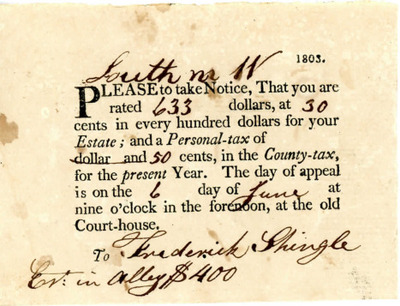 1803.
South m W
PLEASE to take Notice, That you are
rated 633 dollars, at 30
cents in every hundred dollars for your
Estate; and a Personal-tax of
dollar and 50 cents, in the County-tax,
for the present Year. The day of appeal
is on the 6 day of June at
nine o'clock in the forenoon, at the old
Court-house.
To Frederick Shingle
in Alley $400